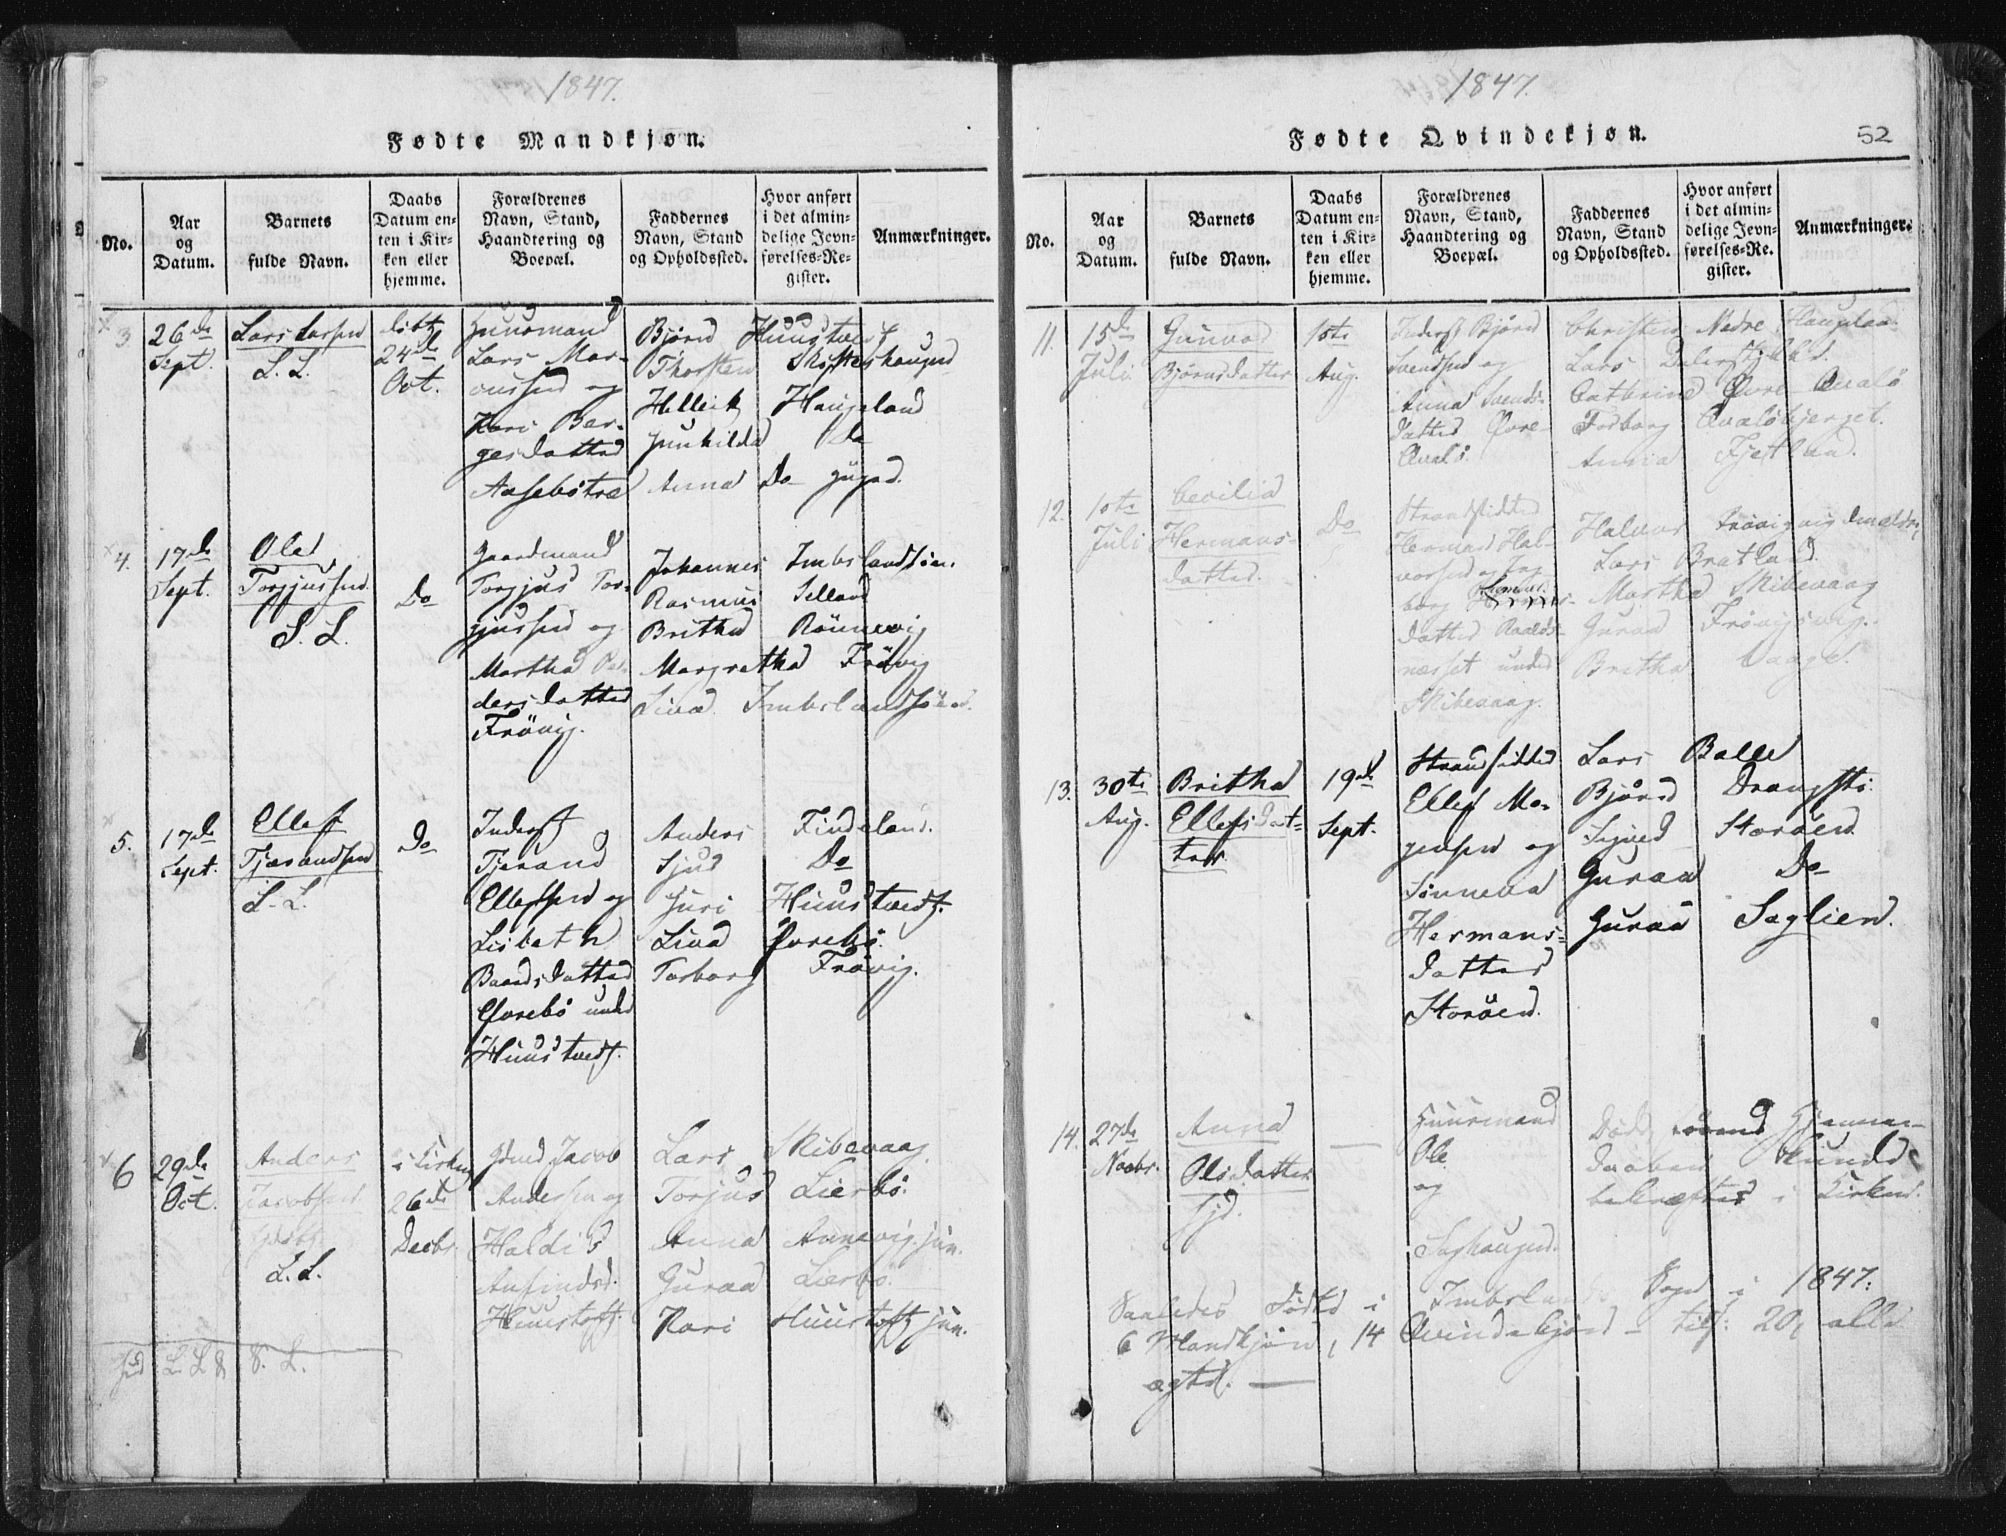 1847.
Fødte Mandkjøn.
No.
Aar
og
Datum.
Barnets
fulde Navn.
Daabs
Datum en-
ten i Kir-
ken eller
hjemme.
Forældrenes
Navn, Stand,
Haandtering og
Boepæl.
Faddernes
Navn, Stand
og Opholdssted.
Hvor anført
i det almin-
delige Jevn-
førelses-Re-
gister.
Anmærkninger.
3
26de
Sept.
Lars Larsen
L. L.
24de
Oct.
Huusmand
Lars Mar-
cussen og
Kari Ber-
gesdatter
Aasebötræ
Bjørn Huustvedt
Thorsten Skifteshaugen
Helleik Haugeland
Gunhilda do
Anna Do
4.
17de
Sept.
Ole
Torgjussen
S. L.
Do
Gaardmand
Torgjus Tor-
gjussen og
Martha Pe-
dersdatter
Frövig.
Johannes Imbslandsöen.
Rasmus Selland
Britha Rönnevig
Margretha Frövig
Sina Imbslandsöen.
5.
17de
Sept.
Ellef
Tjærandsen
L. L.
Do
Inderst
Tjerand
Ellefsen og
Lisbeth
Baardsdatter
Øvrebö under
Huustvedt.
Anders Findeland.
Sjur Do
Guri Huustvedt.
Sina Øvrebö.
Torborg Frövig.
6
29de
Oct.
Anders
Jacobsen
L. L.
i Kirken
26de
Decbr.
Gmd Jacob
Andersen og
Haldis
Anfindsd.
Huustoft.
Lars Skibevaag
Torjus Lierbö.
Anna Annevig jun.
Guraa Lierbö.
Kari Huustoft jun.
L. L. & S. L.
1847.
Fødte Qvindekjøn.
52
No.
Aar
og
Datum.
Barnets
fulde Navn.
Daabs
Datum en-
ten i Kir-
ken eller
hjemme.
Forældrenes
Navn, Stand,
Haandtering og
Boepæl.
Faddernes
Navn, Stand
og Opholdssted.
Hvor anført
i det almin-
delige Jevn-
førelses-Re-
gister.
Anmærkninger.
11.
15de
Juli
Gunvor
Bjørnsdatter
1ste
Aug.
Inderst Bjørn
Svendsen og
Anna Svends-
datter Øvre
Qvalö.
Christen Nedre Haugland
Lars
Cathrine Øvre Qvalö
Torborg Qvalöbjerget.
Anna Fjetland.
12.
1ste
Juli
Cecilia
Hermans
datter.
Do
Strandsidder
Herman Hal-
vorsen og
datter
under
Skibevaag.
Halvor
Lars Bratland
Martha Skibevaag
Guraa Frövigsvig.
Britha Vagge.
13.
30te
Aug.
Britha
Ellefsdat-
ter
19de
Sept.
Strandsidder
Ellef Mo-
gensen og
Sinneva
Hermans-
datter
Storöen.
Lars Balle
Björn
Storöen
Guraa Do
Guraa Saglien.
14.
27de
Novbr.
Anna
Olsdatter
—
Huusmand
Ole
og
Saghaugen.
bekræftet i Kirken.
Saaledes Födte i Imbsland Sogn i 1847:
6 Mandkjön, 14 Qvindekjön - tils: 20, alle
ægte. —